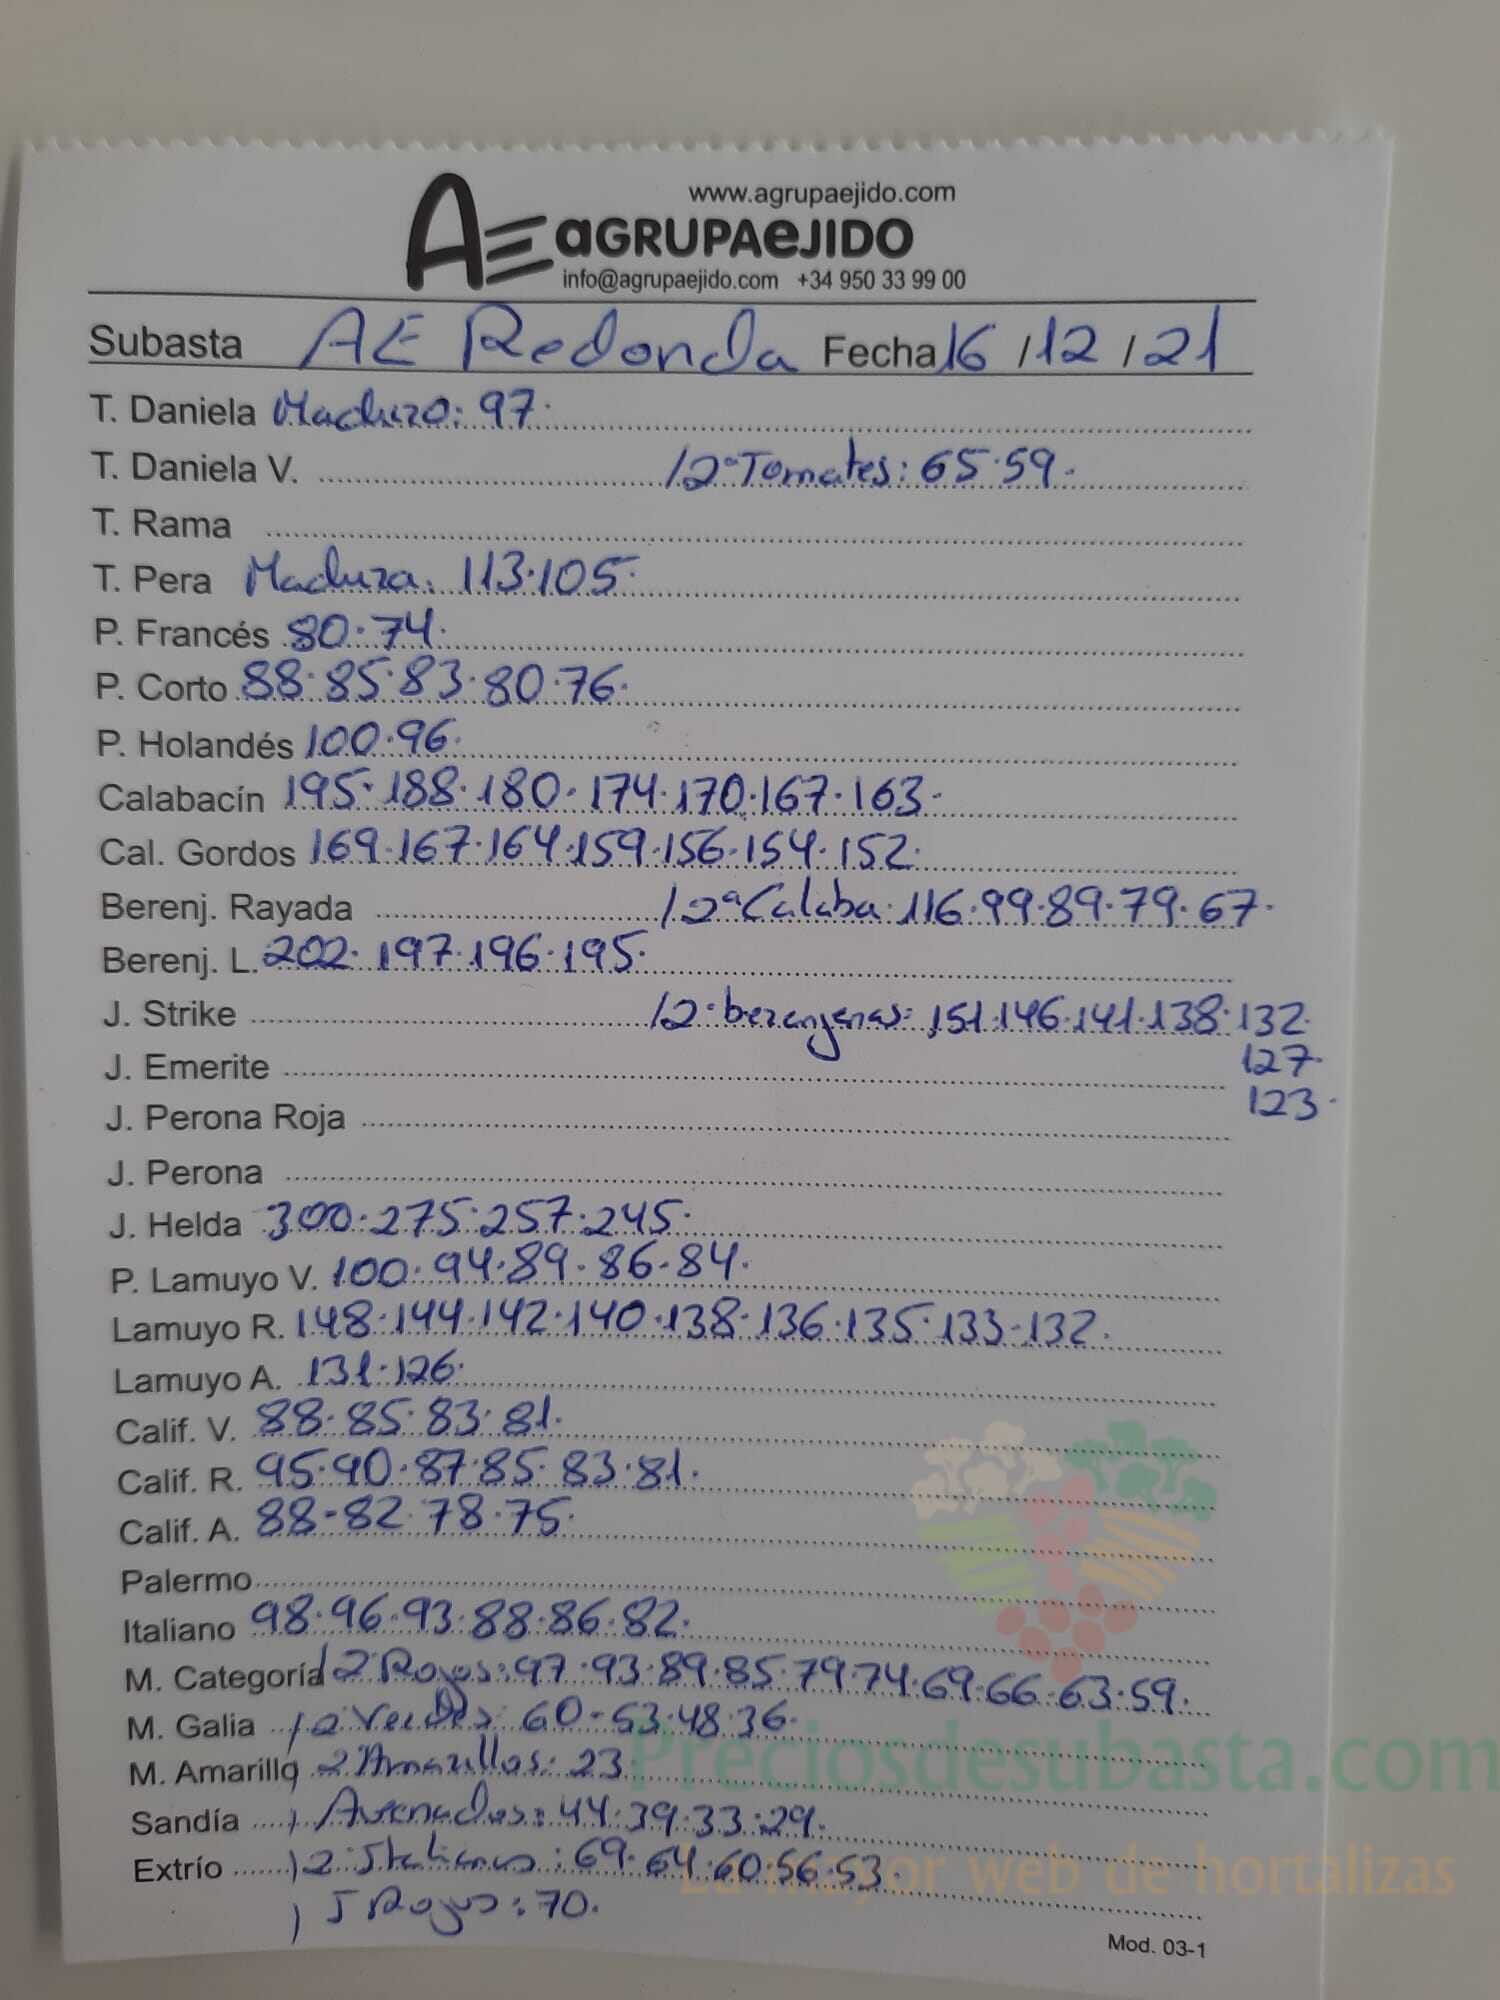 www.agrupaejido.com
AE aGRUPAeJIDO
info@agrupaejido.com +34 950 33 99 00
Subasta AE Redonda Fecha 16/12/21
T. Daniela Maduro: 97.
T. Daniela V. /2ªTomates: 65.59.
T. Rama
T. Pera Madura. 113.105.
P. Francés 80.74.
P. Corto 88.85.83.80.76.
P. Holandés 100.96.
Calabacín 195.188.180.174.170.167.163.
Cal. Gordos 169.167.164.159.156.154.152.
Berenj. Rayada /2ªCalaba. 116.99.89.79.67.
Berenj. L. 202.197.196.195.
J. Strike /2ªberenjenas: 151.146.141.138.132.
J. Emerite 127.
123.
J. Perona Roja
J. Perona
J. Helda 300.275.257.245.
P. Lamuyo V. 100.94.89.86.84.
Lamuyo R. 148.144.142.140.138.136.135.133-132.
Lamuyo A. 131.126.
Calif. V. 88.85.83.81.
Calif. R. 95.90.87.85.83.81.
Calif. A. 88-82.78.75.
Palermo
Italiano 98.96.93.88.86.82.
M. Categoría /2ªRojos: 97.93.89.85.79.74.69.66.63.59.
M. Galia /2ªVerdes: 60-53.48.36.
M. Amarillo 2ªAmarillos: 23
Sandía / Asurnados: 44.39.33.29.
Extrío /2ªItalianos: 69.64.60.56.53
/ J Rojos: 70.
Preciosdesubasta.com
La mayor web de hortalizas
Mod. 03-1